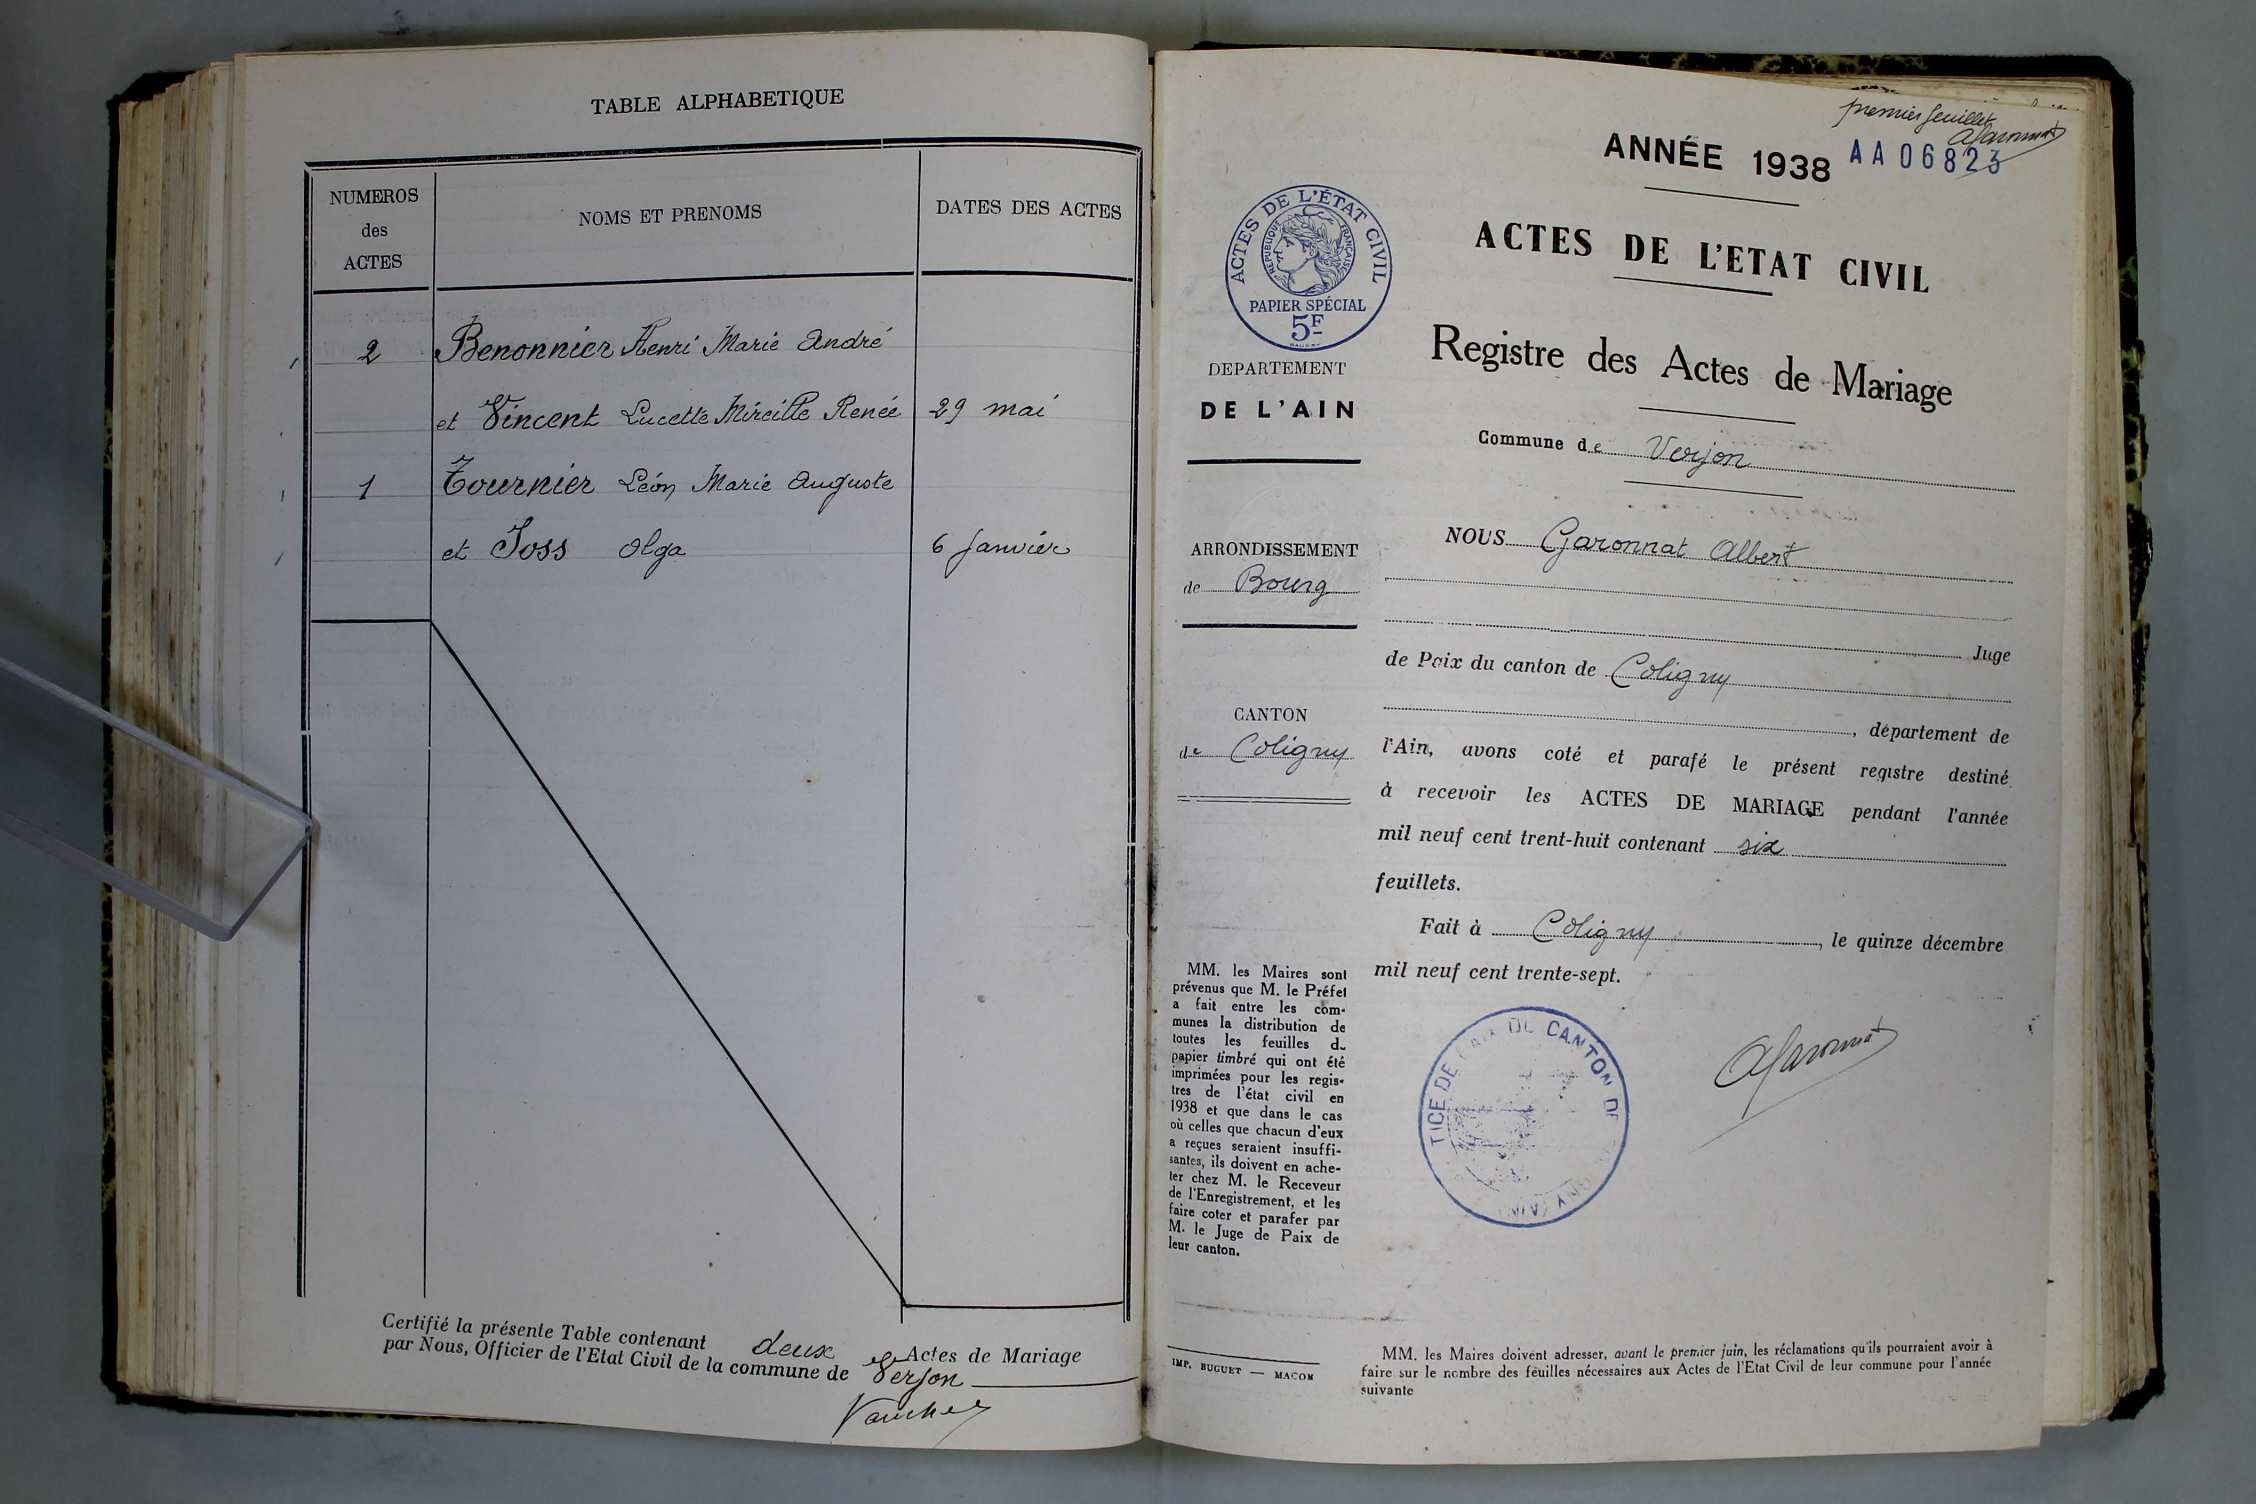 TABLE ALPHABETIQUE
NUMEROS
des
ACTES
NOMS ET PRENOMS
DATES DES ACTES
2 Benonnier Henri Marie André
et Vincent Lucette Mireille Renée 29 mai
1 Tournier Léon Marie Auguste
et Joss Olga 6 Janvier
Certifié la présente Table contenant deux Actes de Mariage
par Nous, Officier de l'Etat Civil de la commune de Verjon
premier feuillet
AGaronnat
ANNÉE 1938
AA06823
ACTES DE L'ÉTAT CIVIL
REPUBLIQUE FRANÇAISE
PAPIER SPÉCIAL
5F
ACTES DE L'ETAT CIVIL
Registre des Actes de Mariage
Commune de Verjon
DEPARTEMENT
DE L'AIN
ARRONDISSEMENT
de Bourg
CANTON
de Coligny
NOUS Garonnat Albert
Juge
de Paix du canton de Coligny
, département de
l'Ain, avons coté et parafé le présent registre destiné
à recevoir les ACTES DE MARIAGE pendant l'année
mil neuf cent trent-huit contenant six
feuillets.
Fait à Coligny, le quinze décembre
mil neuf cent trente-sept.
AGaronnat
TICE DE PAIX DU CANTON DE
(AIN)
MM. les Maires sont
prévenus que M. le Préfet
a fait entre les com-
munes la distribution de
toutes les feuilles d
papier timbré qui ont été
imprimées pour les regis-
tres de l'état civil en
1938 et que dans le cas
où celles que chacun d'eux
a reçues seraient insuffi-
santes, ils doivent en ache-
ter chez M. le Receveur
de l'Enregistrement, et les
faire coter et parafer par
M. le Juge de Paix de
leur canton.
IMP. BUGUET — MACON
MM. les Maires doivent adresser, avant le premier juin, les réclamations qu'ils pourraient avoir à
faire sur le nombre des feuilles nécessaires aux Actes de l'Etat Civil de leur commune pour l'année
suivante